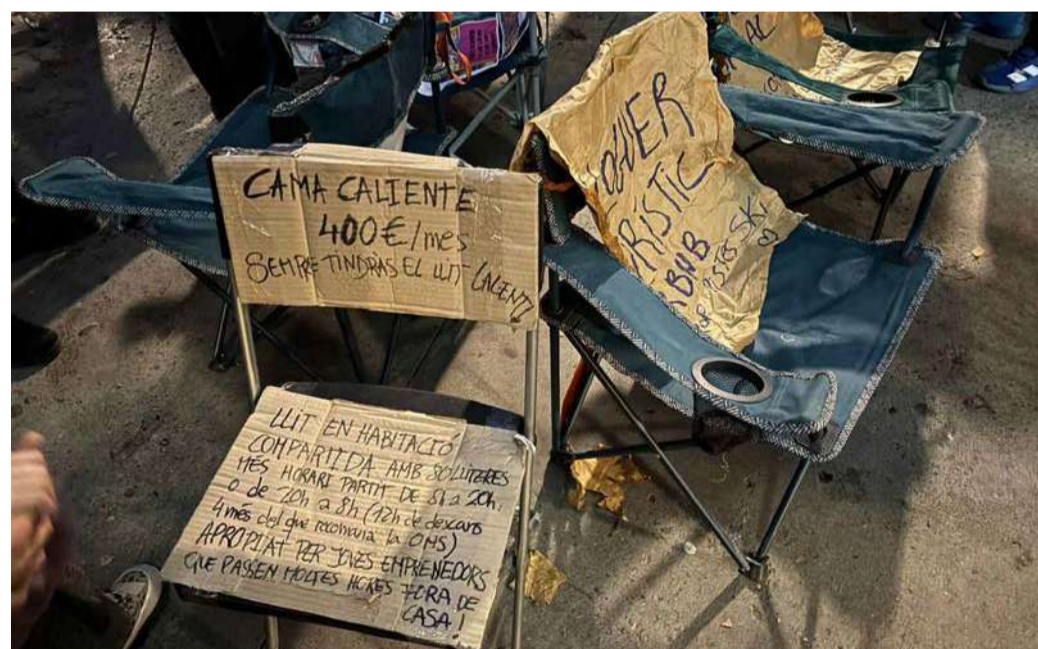 CAMA CALIENTE
400€/mes
SEMPRE TINDRAS EL LLIT CALENT!
LLIT EN HABITACIÓ
COMPARTIDA AMB 8 LLITERES
MÉS HORARI PARTIT DE 8h a 20h.
o de 20h a 8h (12h de descans
4 més del que recomana la OMS)
APROPIAT PER JOVES EMPRENEDORS
QUE PASSEN MOLTES HORES FORA DE
CASA!
LOGUER
RÍSTIC
BNB